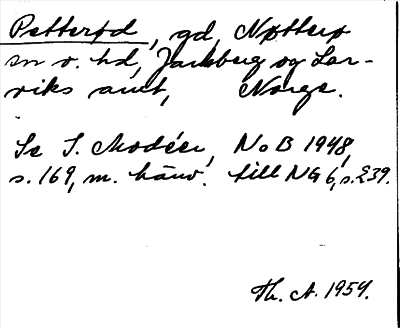 Petterød, gd, Nøtterø
sn o. hd, Jarlsberg og Lar-
viks amt, Norge.
Se I. Modéer, NoB 1948,
s. 169, m. hänv. till NG 6, s. 239.
Th. A. 1954.